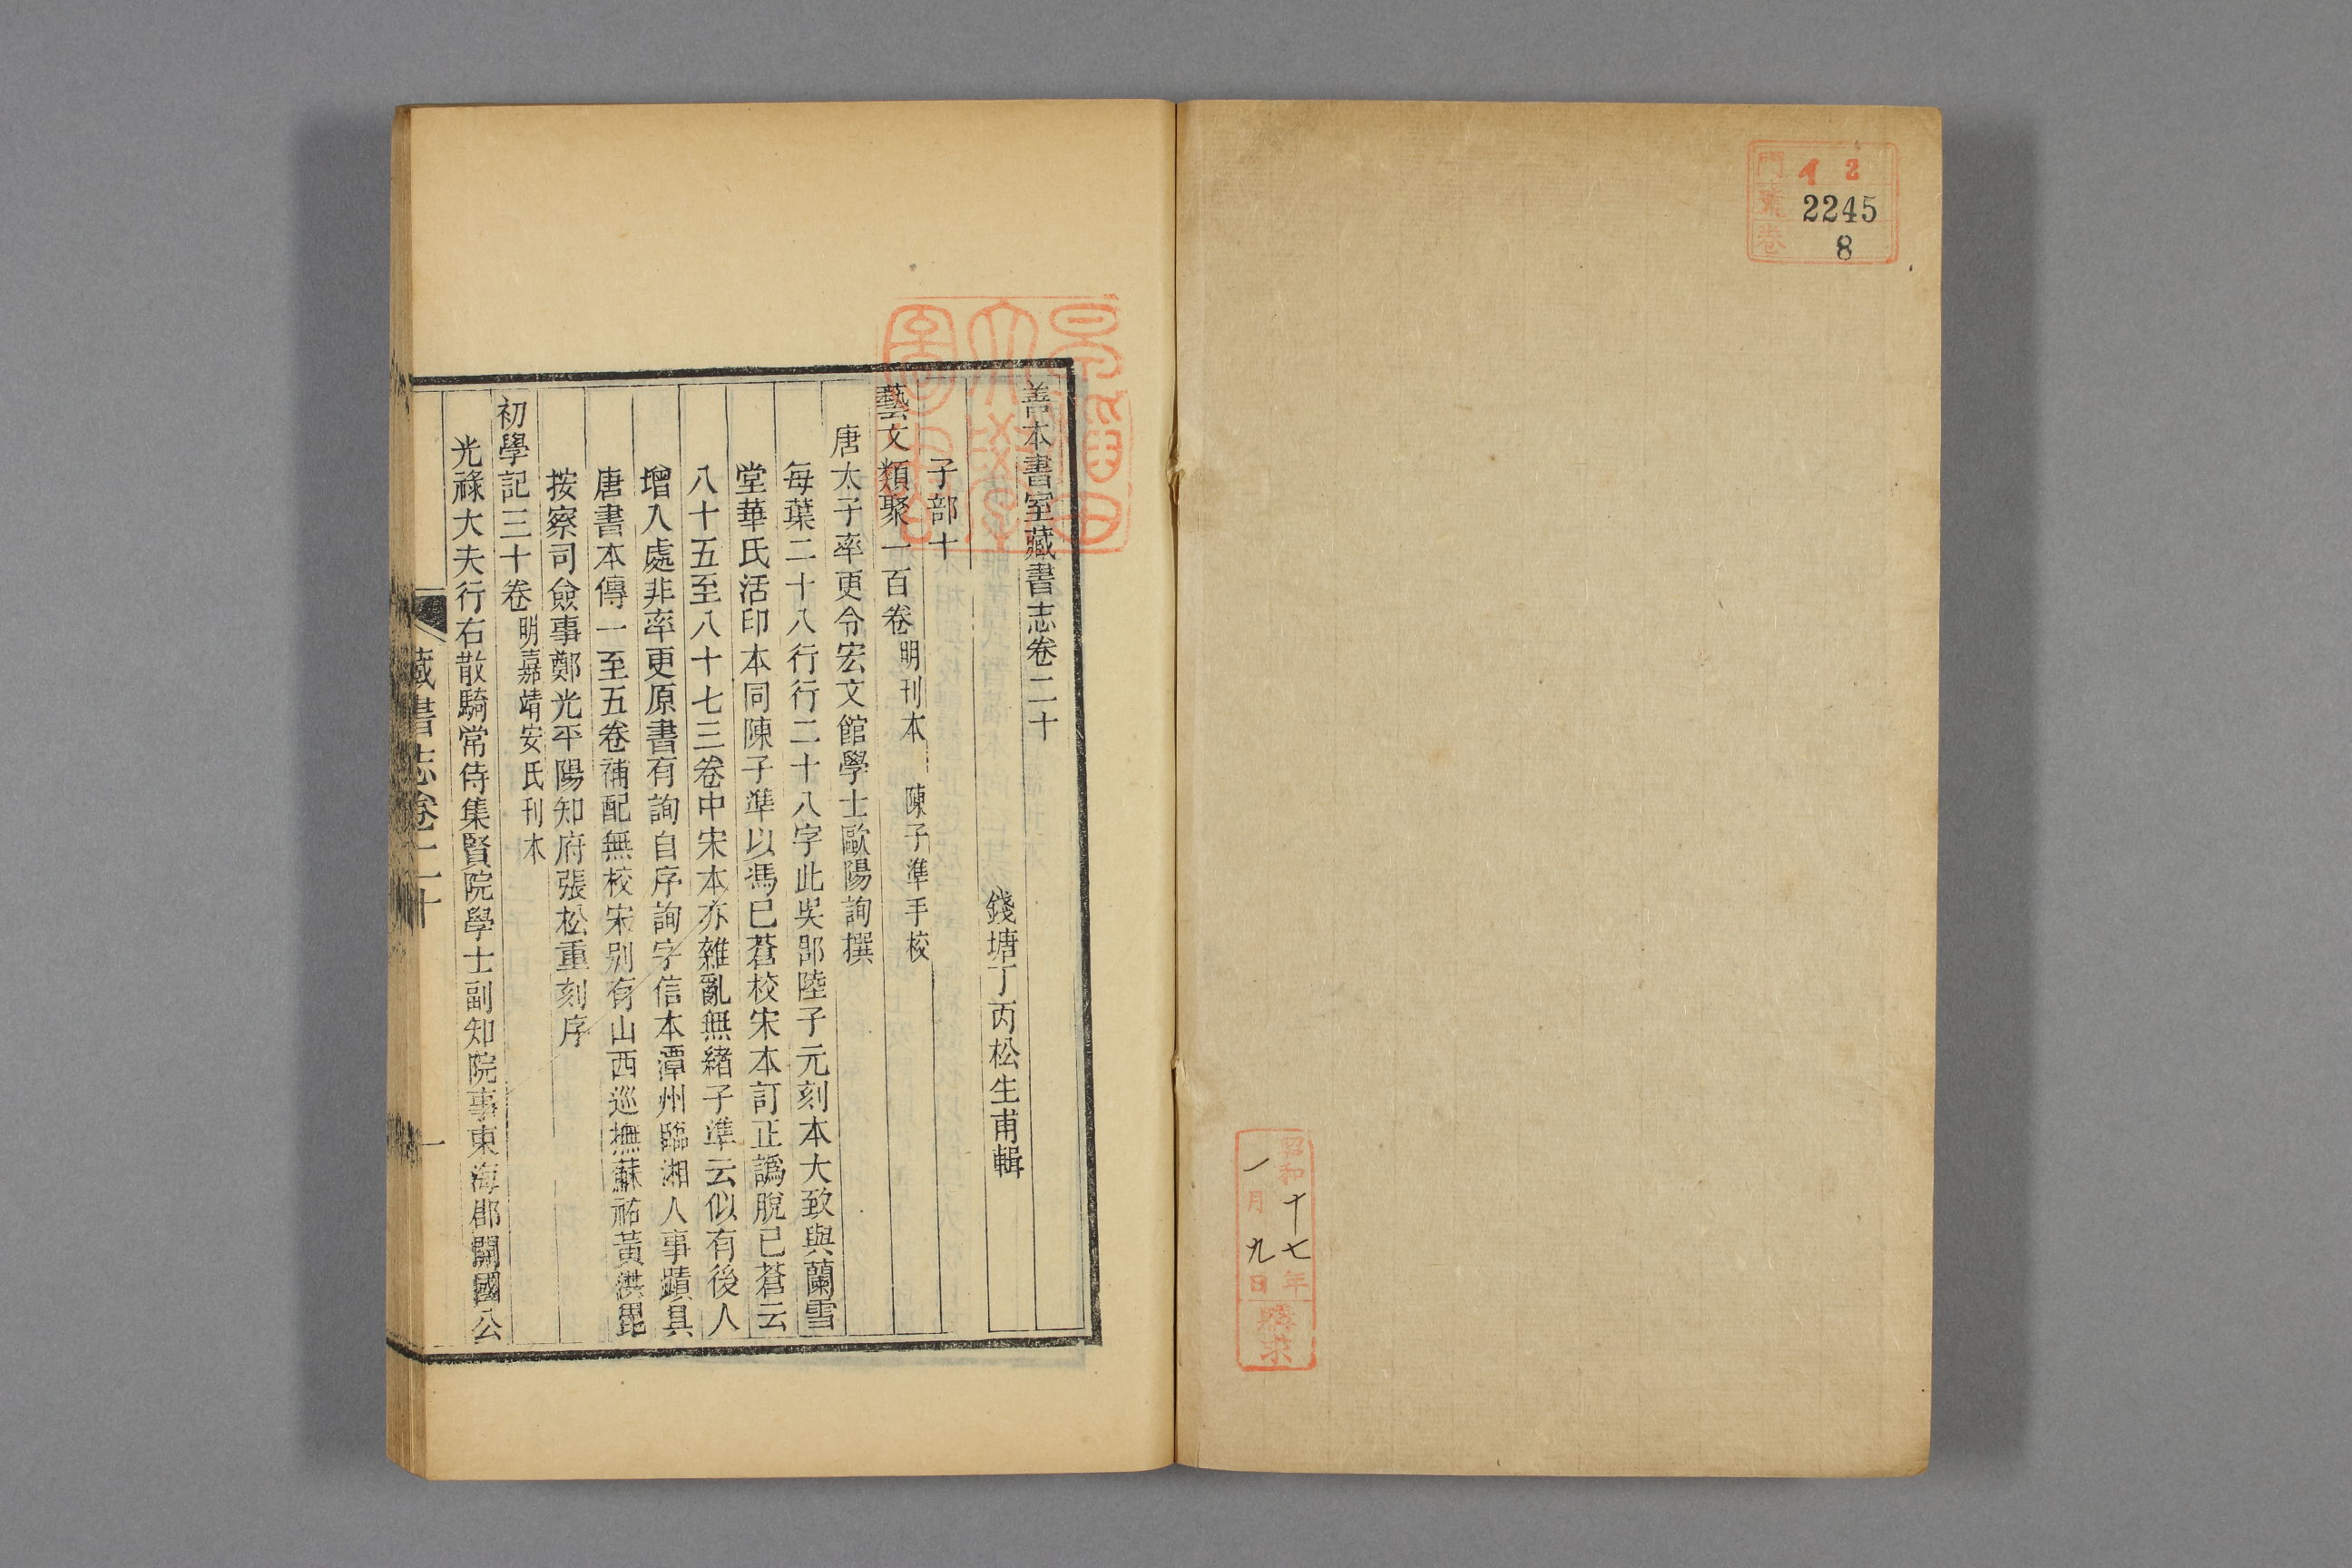 門 イ 2
彙 2245
卷 8
昭和十七年
一月九日
購求
早稲田
大學
圖書
善本書室藏書志卷二十
錢塘丁丙松生甫輯
子部十
藝文類聚一百卷 明刊本 陳子準手校
唐太子率更令宏文館學士歐陽詢撰
每葉二十八行行二十八字此吳郡陸子元刻本大致與蘭雪
堂華氏活印本同陳子準以馮已蒼校宋本訂正譌脫已蒼云
八十五至八十七三卷中宋本亦雜亂無緒子準云似有後人
增入處非率更原書有詢自序詢字信本潭州臨湘人事蹟具
唐書本傳一至五卷補配無校宋别有山西巡撫蘇祐黃洪毘
按察司僉事鄭光平陽知府張松重刻序
初學記三十卷 明嘉靖安氏刊本
光祿大夫行右散騎常侍集賢院學士副知院事東海郡開國公
藏書志卷二十
一